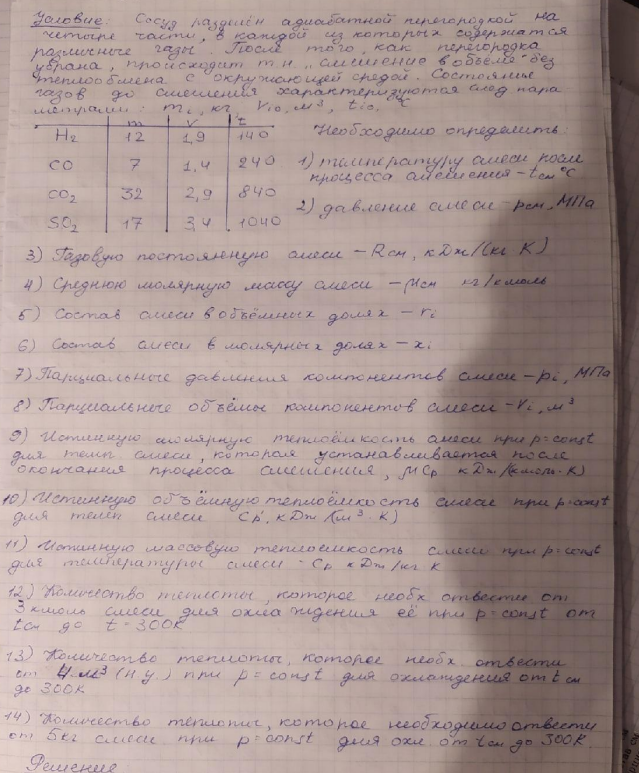 Условие: Сосуд разделён адиабатной перегородкой на
четыре части, в каждой из которых содержатся
различные газы. После того, как перегородка
убрана, происходит т.н. "смешение в объёме" без
теплообмена с окружающей средой. Состояние
газов до смешения характеризуются след. пара-
метрами: mi, кг, Vio, м³, tio, °C
m V t
H2 12 1,9 140
CO 7 1,4 240
CO2 32 2,9 840
SO2 17 3,4 1040
Необходимо определить:
1) температуру смеси после
процесса смешения – tсм °C
2) давление смеси – pсм, МПа
3) Газовую постоянную смеси – Rсм, кДж/(кг К)
4) Среднюю молярную массу смеси – μсм кг/кмоль
5) Состав смеси в объёмных долях – ri
6) Состав смеси в молярных долях – xi
7) Парциальные давления компонентов смеси – pi, МПа
8) Парциальные объёмы компонентов смеси – Vi, м³
9) Истинную молярную теплоёмкость смеси при p=const
для темп. смеси, которая устанавливается после
окончания процесса смешения, μCp кДж/(кмоль·К)
10) Истинную объёмную теплоёмкость смеси при p=const
для темп смеси Cp', кДж/(м³·К)
11) Истинную массовую теплоёмкость смеси при p=const
для температуры смеси – Cp кДж/кг К
12) Количество теплоты, которое необх отвести от
3 кмоль смеси для охлаждения её при p=const от
tсм до t=300К
13) Количество теплоты, которое необх. отвести
от 4 м³ (н у.) при p=const для охлаждения от tсм
до 300К
14) Количество теплоты, которое необходимо отвести
от 5кг смеси при p=const для охл от tсм до 300К
Решение